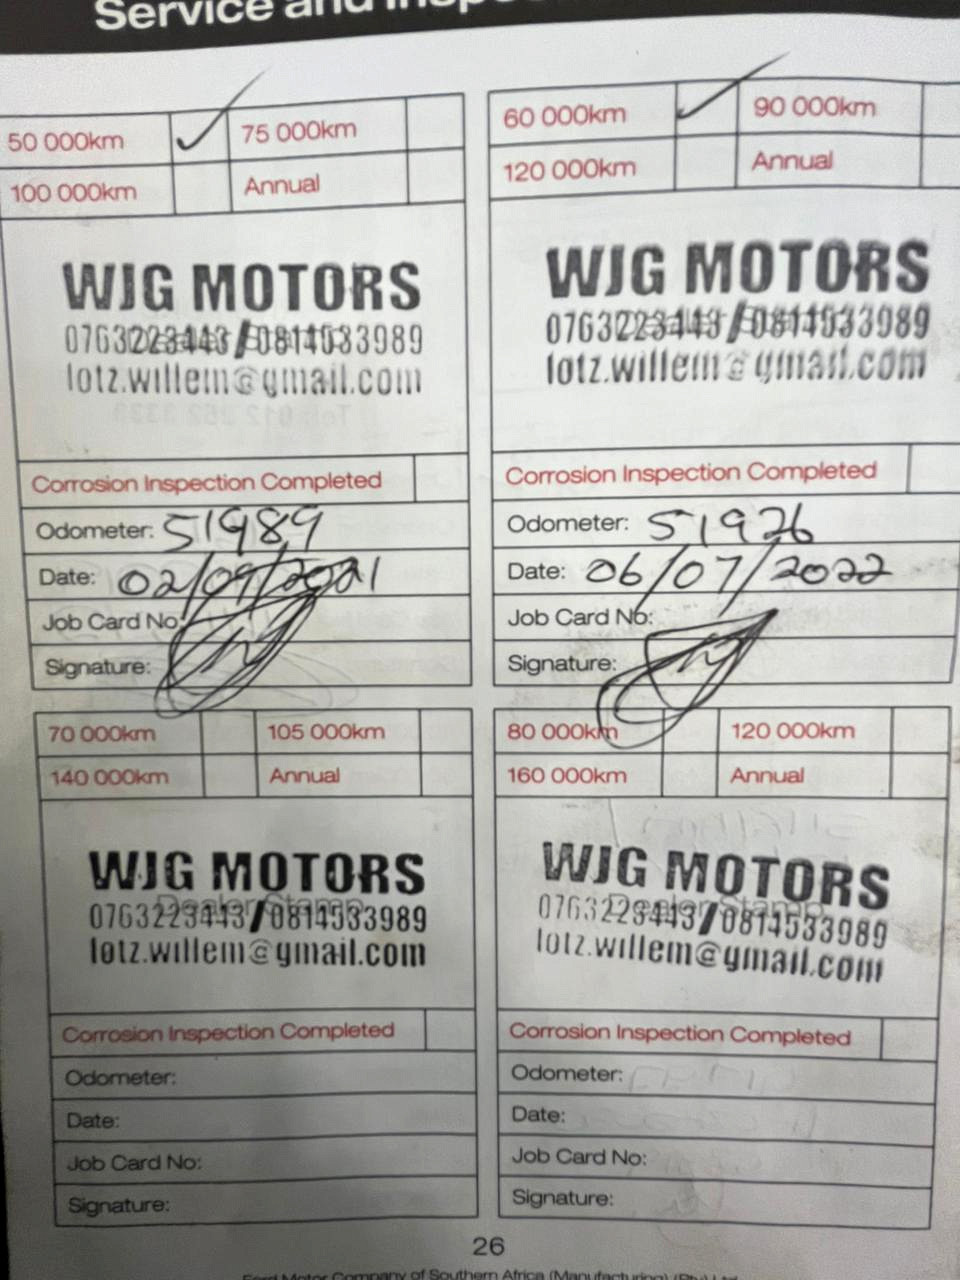 Service and
50 000km 75 000km
100 000km Annual
WJG MOTORS
0763223443/0814533989
lotz.willem@gmail.com
Corrosion Inspection Completed
Odometer: 51989
Date: 02/09/2021
Job Card No:
Signature:
60 000km 90 000km
120 000km Annual
WJG MOTORS
0763223443/0814533989
lotz.willem@gmail.com
Corrosion Inspection Completed
Odometer: 51926
Date: 06/07/2022
Job Card No:
Signature:
70 000km 105 000km
140 000km Annual
WJG MOTORS
Dealer Stamp
0763223443/0814533989
lotz.willem@gmail.com
Corrosion Inspection Completed
Odometer:
Date:
Job Card No:
Signature:
80 000km 120 000km
160 000km Annual
WJG MOTORS
Dealer Stamp
0763223443/0814533989
lotz.willem@gmail.com
Corrosion Inspection Completed
Odometer:
Date:
Job Card No:
Signature:
26
Ford Motor Company of Southern Africa (Manufacturing) (Pty) Ltd